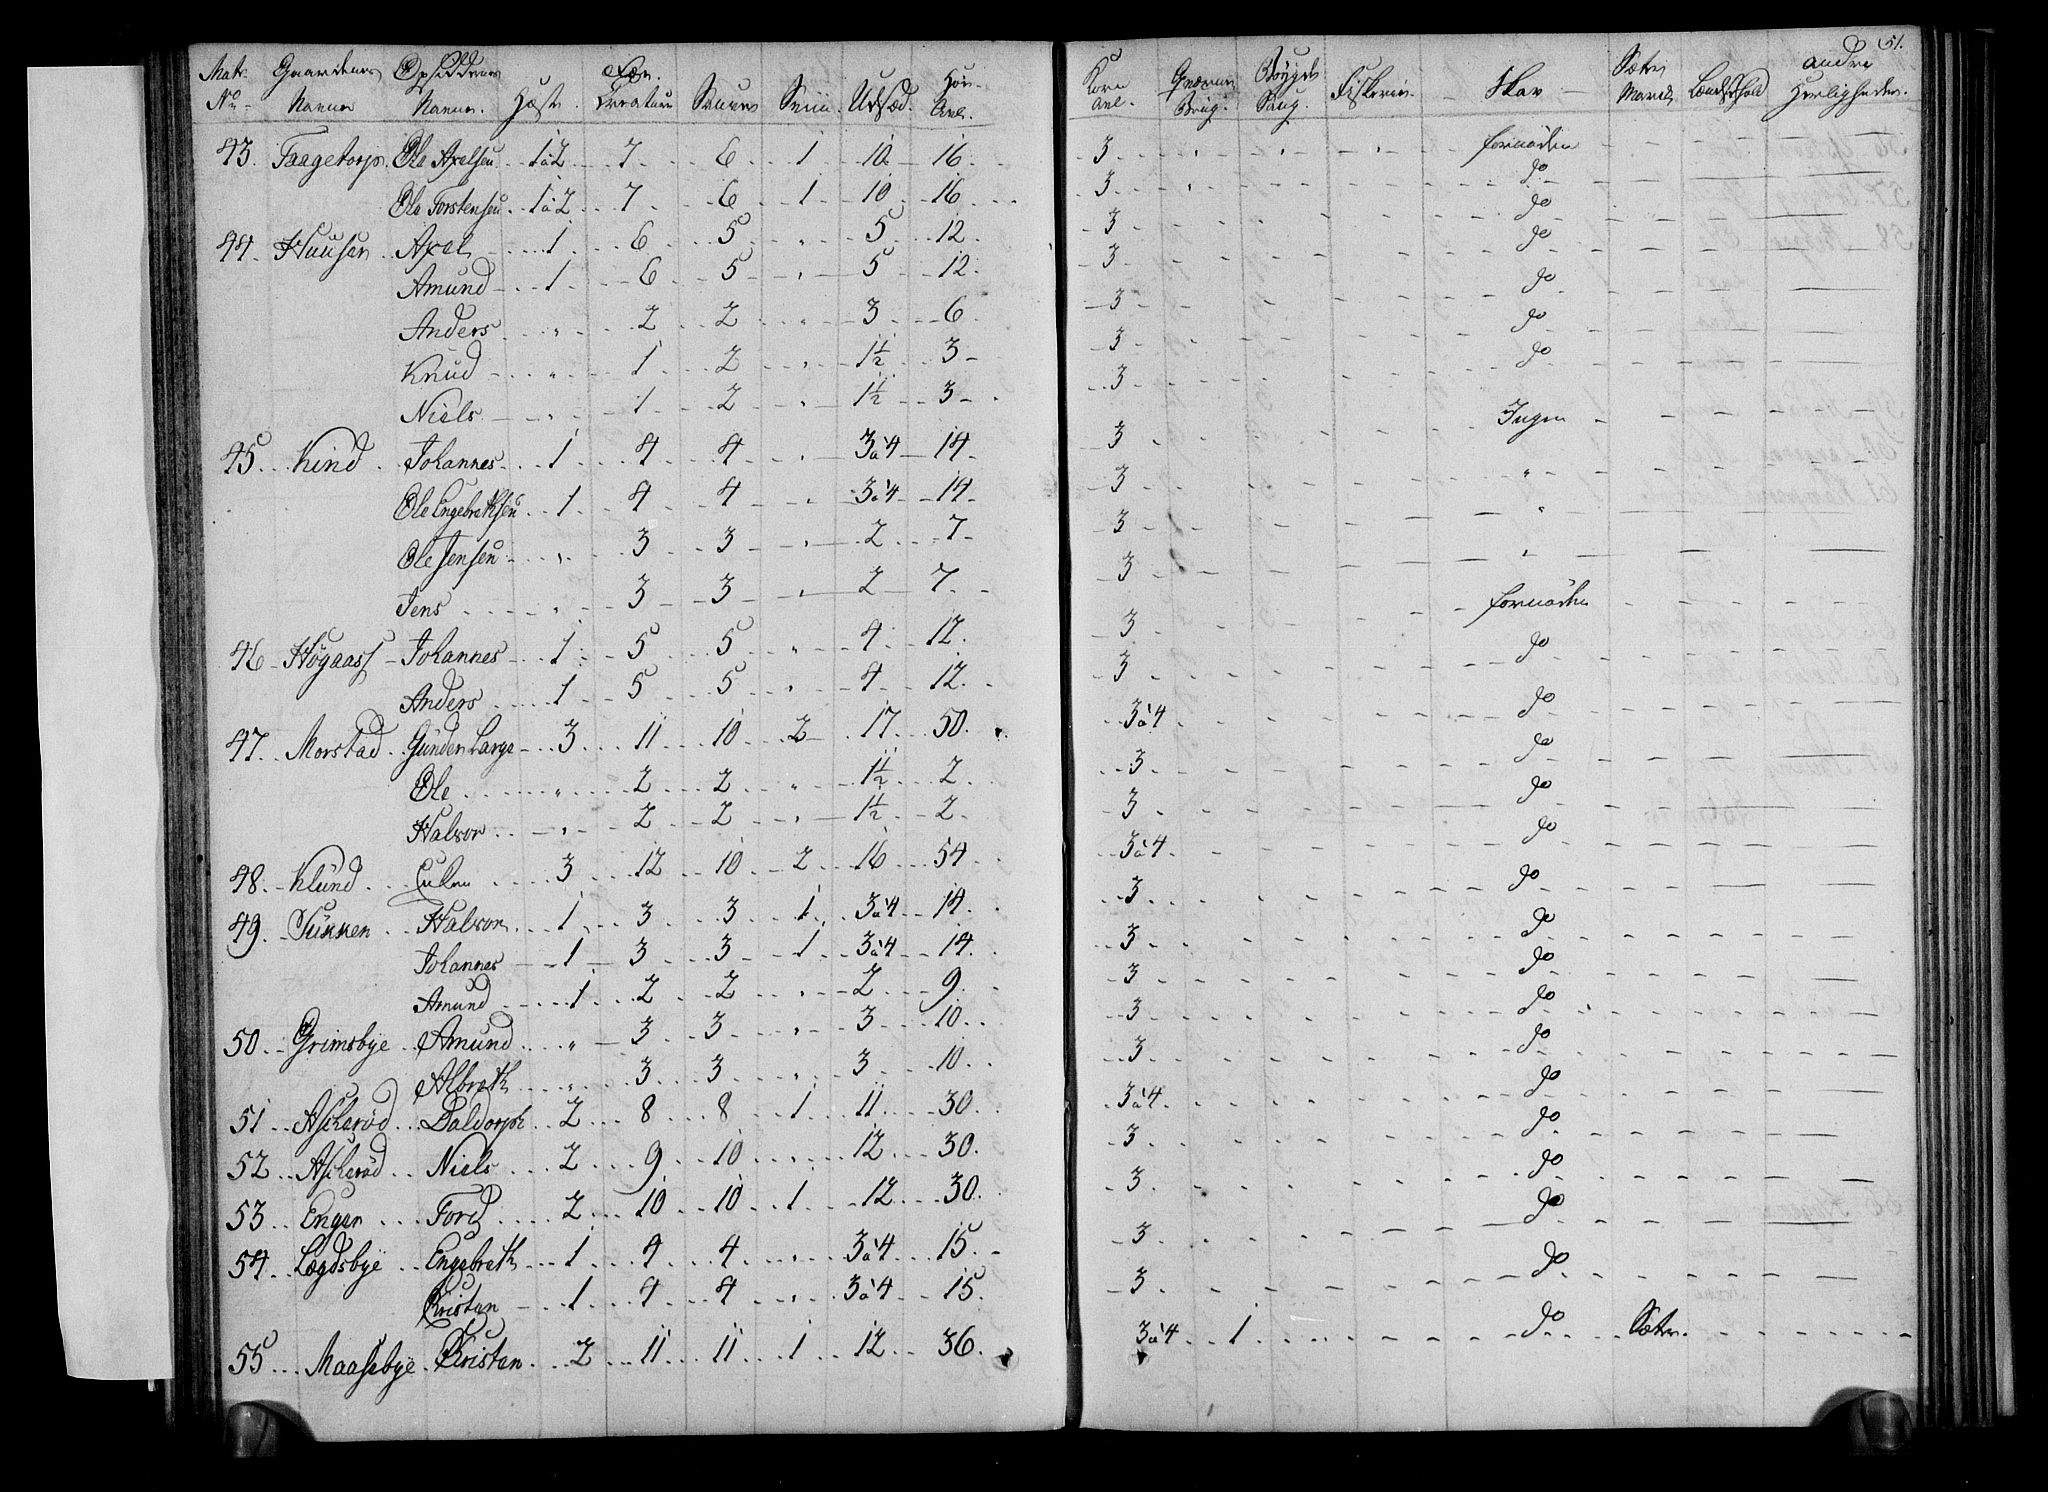 51.
Matr. No Gaardenes Navne Opsiddernes Navne. Hæste Fæe Creature Sauer Sviin Udsæd. Høe-Avl. Korn Avl. Qværne Brug. Bøygde Saug. Fiskerie Skov Sæter Marck andre Herligheder.
43. Taagetorp. Ole Axelsen 1 à 2 7 6 1 10 16 3 fornøden
Ole Torstensen 1 à 2 7 6 1 10 16 3 do
44. Huuser Axel 1 6 5 " 5 12. 3 do
Amund 1 6 5 " 5 12. 3 do
Anders " 2 2 " 3 6 3 do
Knud " 1 2 " 1½ 3 3 do
Niels " 1 2 " 1½ 3 3 do
45 Kind Johannes 1 4 4 " 3 à 4 14 3 Ingen
Ole Engebrethsen 1 4 4 " 3 à 4 14 3 "
Ole Jensen " 3 3 " 2 7 3 "
Jens " 3 3 " 2 7 3 "
46 Høgaass Johannes 1 5 5 " 4 12. 3 fornøden
Anders 1 5 5 " 4 12. 3 do
47. Morstad Gunder Large 3 11 10 2 17 50. 3 à 4 do
Ole " 2 2 " 1½ 2. 3 do
Halvor " 2 2 " 1½ 2. 3 do
48. Klund 3 12 10 2 16 54 3 à 4 do
49. Halvor 1 3 3 1 3 à 4 14. 3 do
Johannes 1 3 3 1 3 à 4 14. 3 do
Amund 1 2 2 " 2 9. 3 do
50. Grimsbye Amund " 3 3 " 3 10 3 do
Albreth " 3 3 " 3 10. 3 do
51 Askerød Baldorph 2 8 8 1 11 30. 3 à 4 do
52 Askerød Niels 2 9 10 " 12 30. 3 do
53 Enger Tord 2 10 10 1 12 30. 3 do
54 Lægdsbye Engebreth 1 4 4 " 3 à 4 15. 3 do
Christen 1 4 4 " 3 à 4 15. 3 do
55 Maasebye Christen 2 11 11 1 12 36. 3 à 4 1 do Sæter